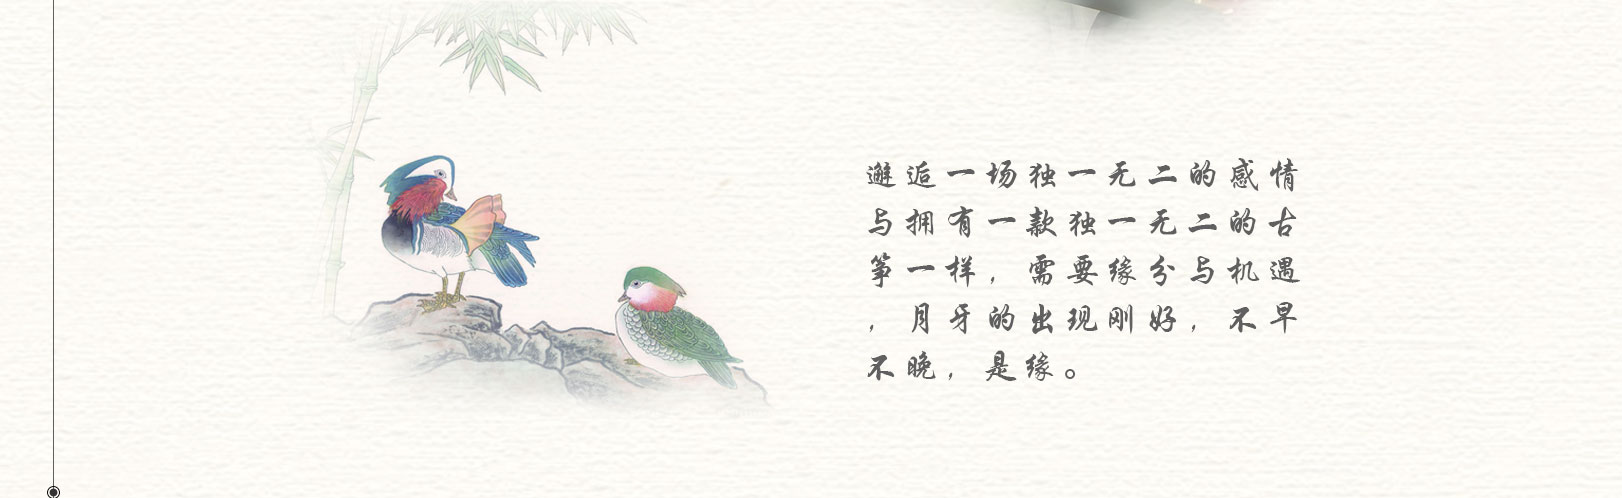 邂逅一场独一无二的感情
与拥有一款独一无二的古
筝一样，需要缘分与机遇
，月牙的出现刚好，不早
不晚，是缘。